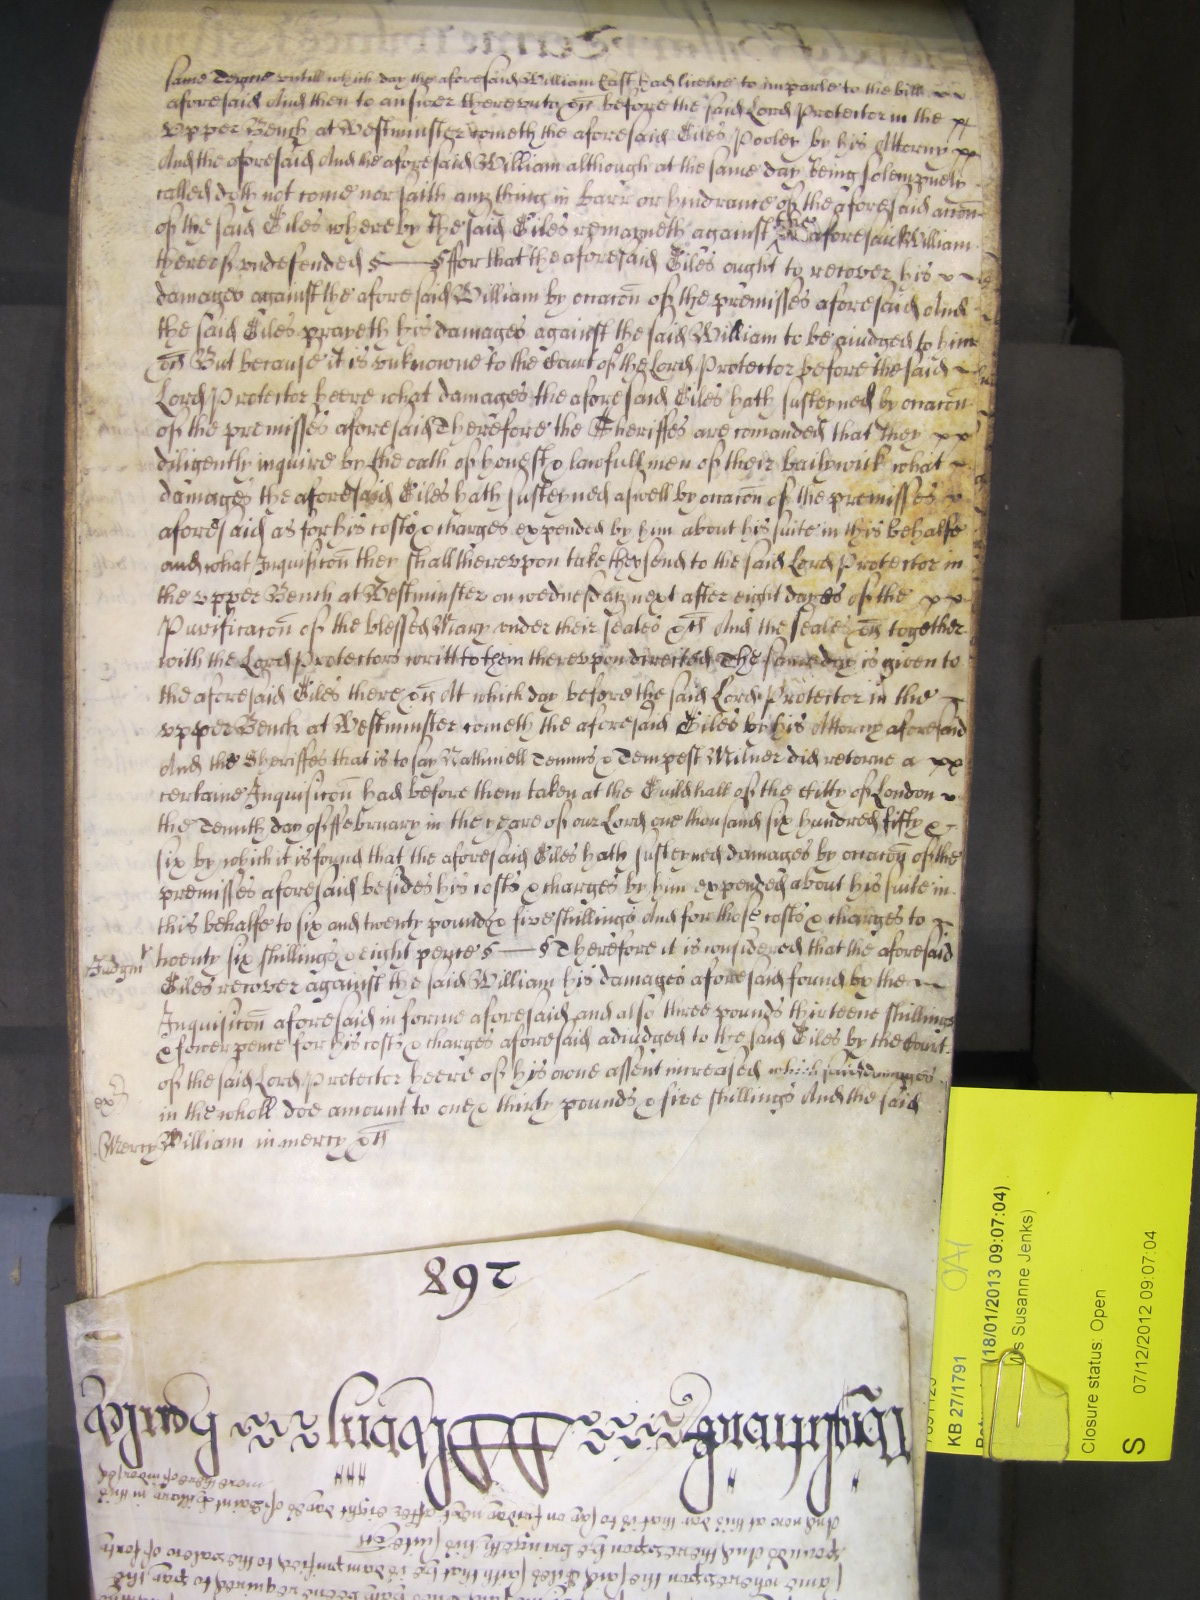 same Terme untill which day the aforesaid William East had licence to imparle to the bill
aforesaid And then to answer thereunto &c before the said Lord Protector in the
upper Bench at Westminster cometh the aforesaid Giles Pooley by his Attorny
And the aforesaid And the aforesaid William although at the same day being solempnely
called doth not come nor saith any thing in barr or hindrance of the aforesaid accon
of the said Giles whereby the said Giles remayneth against the aforesaid William
thereof undefended § — § ffor that the aforesaid Giles ought to recover his
damages against the aforesaid William by occacon of the premisses aforesaid And
the said Giles prayeth his damages against the said William to be aiudged to him
&c But because it is unknowne to the Court of the Lord Protector before the said
Lord Protector heere what damages the aforesaid Giles hath susteyned by occacon
of the premisses aforesaid Therefore the Sheriffes are comanded that they
diligently inquire by the oath of honest & lawfull men of their bailywick what
damages the aforesaid Giles hath susteyned aswell by occacon of the premisses
aforesaid as for his costs & charges expended by him about his suite in this behalfe
and what Inquisicon they shall thereuppon take they send to the said Lord Protector in
the upper Bench at Westminster on wednesday next after eight dayes of the
Purificacon of the blessed Mary under their seales &c And the seales &c together
with the Lord Protectors writt to them thereuppon directed The same day is given to
the aforesaid Giles there &c At which day before the said Lord Protector in the
upper Bench at Westminster cometh the aforesaid Giles by his Attorny aforesaid
And the Sheriffes that is to say Nathaniell Temms & Tempest Milner did retorne a
certaine Inquisicon had before them taken at the Guildhall of the Citty of London
the Tennth day of ffebruary in the yeare of our Lord one thousand six hundred fifty &
six by which it is found that the aforesaid Giles hath susteyned damages by occacon of the
premisses aforesaid besides his costs & charges by him expended about his suite in
this behalfe to six and twenty pounds & five shillings And for those costs & charges to
Judgmt twenty six shillings & eight pence § — § Therefore it is considered that the aforesaid
Giles recover against the said William his damages aforesaid found by the
Inquisicon aforesaid in forme aforesaid and also three pounds thirteene shillings
& fower pence for his costs & charges aforesaid adiudged to the said Giles by the Court
of the said Lord Protector heere of his owne assent increased which said damages
in the wholl doe amount to one & thirty pounds & five shillings And the said
Mercy William in mercy &c
268
KB 27/1791
(18/01/2013 09:07:04)
Susanne Jenks)
Closure status: Open
S
07/12/2012 09:07:04
And now at this day that is to say on friday next after eight dayes of saint Hillary in this